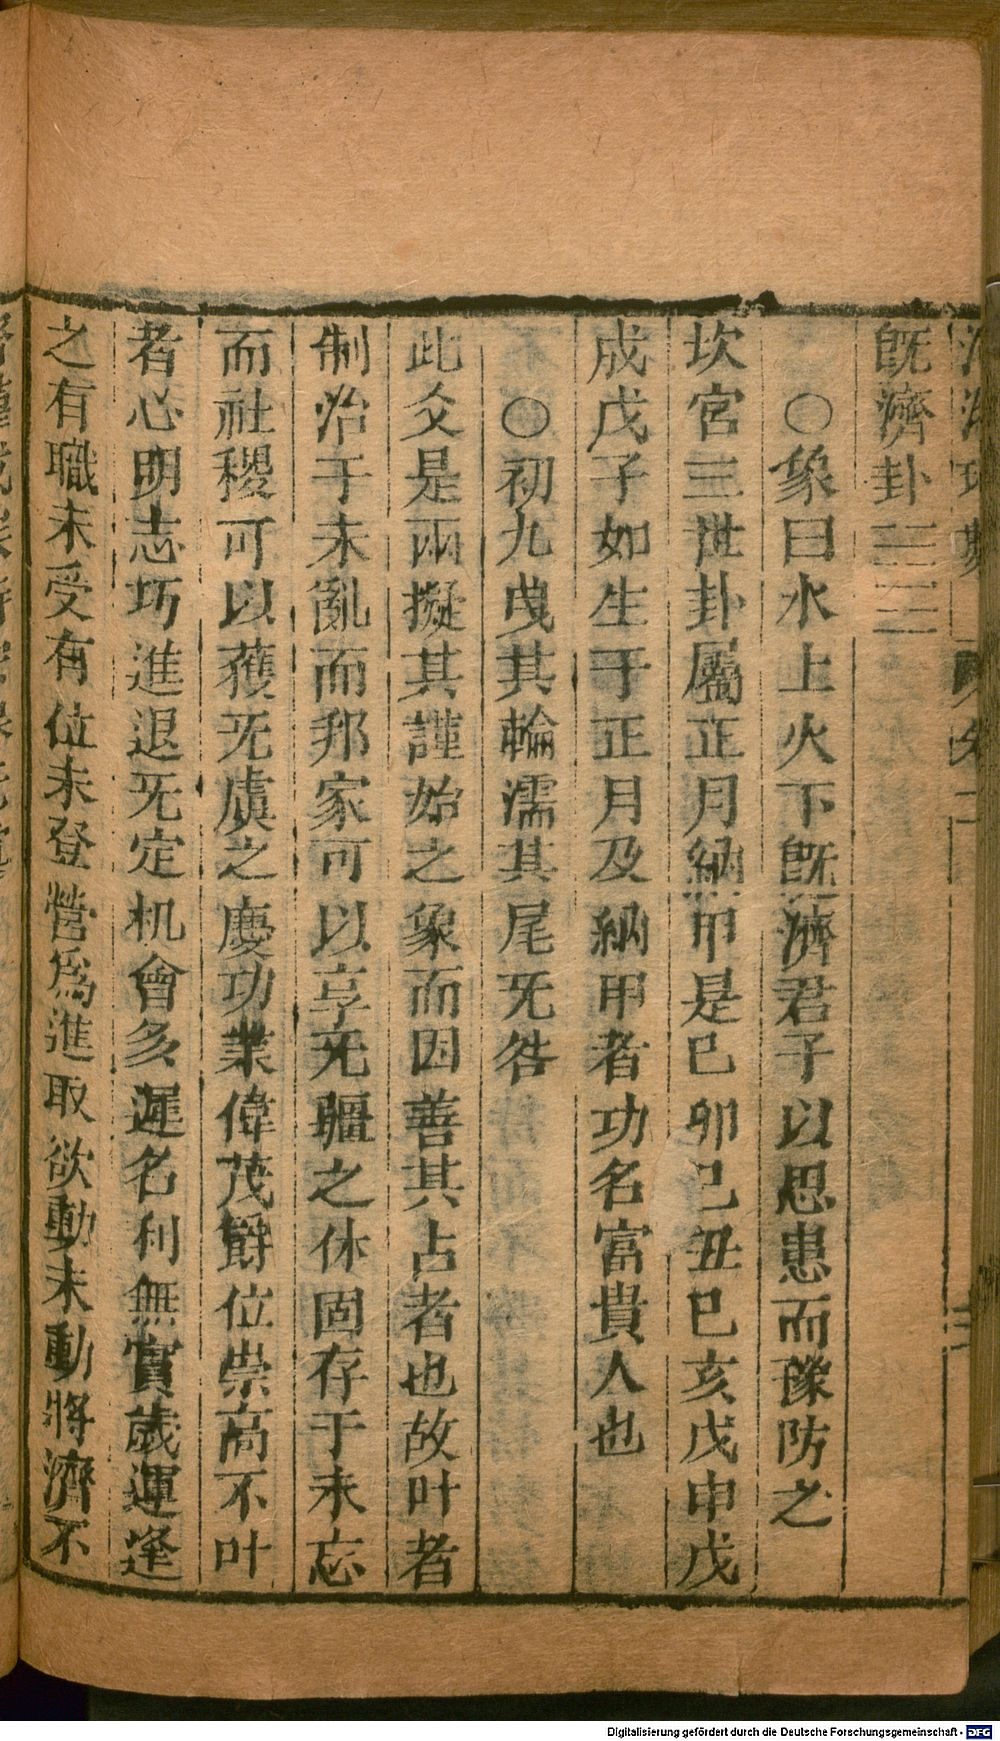 既濟卦
○象曰水上火下既濟君子以思患而豫防之
坎宮三世卦屬正月納甲是巳卯巳丑巳亥戊申戊
戍戊子如生于正月及納甲者功名富貴人也
○初九曳其輪濡其尾旡咎
此爻是兩擬其謹始之象而因善其占者也故叶者
制治于未亂而邦家可以享旡疆之休固存于未忘
而社稷可以獲旡虞之慶功業偉茂爵位崇高不叶
者心明志巧進退旡定机會多遲名利無實歲運逢
之有職未受有位未登營爲進取欲動未動將濟不
Digitalisierung gefördert durch die Deutsche Forschungsgemeinschaft - DFG